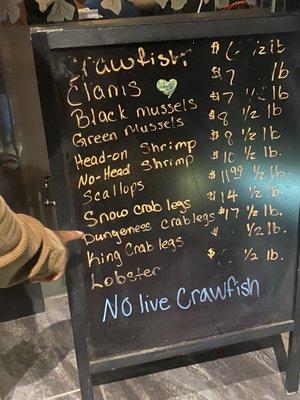 Crawfish $ 6 ½ lb
Clams $ 7 lb
Black mussels $ 7 ½ lb.
Green mussels $ 8 ½ lb.
Head-on Shrimp $ 8 ½ lb.
No-Head Shrimp $ 10 ½ lb.
Scallops $ 11.99 ½ lb.
Snow crab legs $ 14 ½ lb.
Dungeness crab legs $ 17 ½ lb.
King Crab legs $ ½ lb.
Lobster $ ½ lb.
No live Crawfish